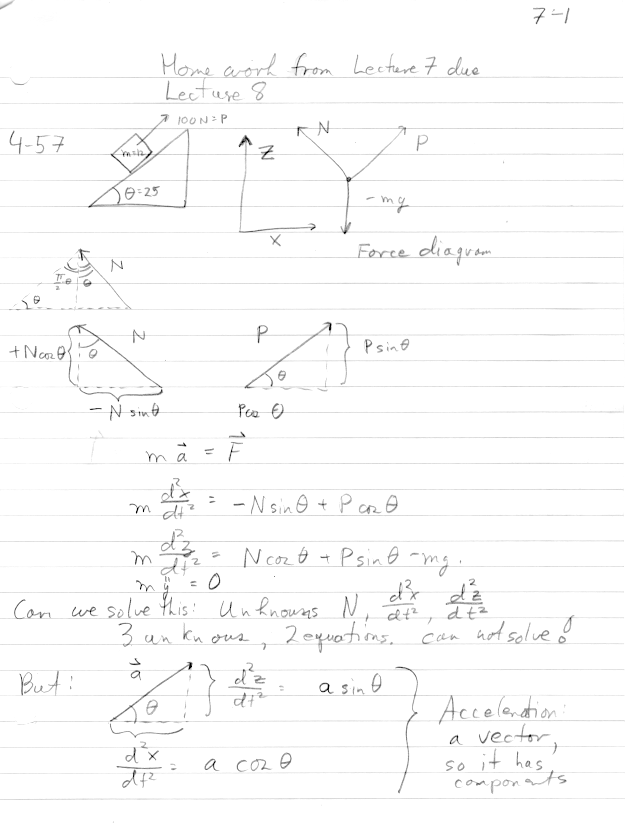 7-1
Home work from Lecture 7 due
Lecture 8
4-57
100N=P
m=12
θ=25
Z
X
N
P
-mg
Force diagram
N
π/2 θ
θ
θ
+N cos θ
θ
N
- N sin θ
P
θ
P sin θ
P cos θ
m a⃗ = F⃗
m d²x/dt² = -N sin θ + P cos θ
m d²z/dt² = N cos θ + P sin θ - mg.
m ÿ = 0
Can we solve this: Unknowns N, d²x/dt², d²z/dt²
3 unknous, 2 equations. can not solve!
But:
a⃗
θ
d²z/dt² = a sin θ
d²x/dt² = a cos θ
Acceleration:
a vector,
so it has
components